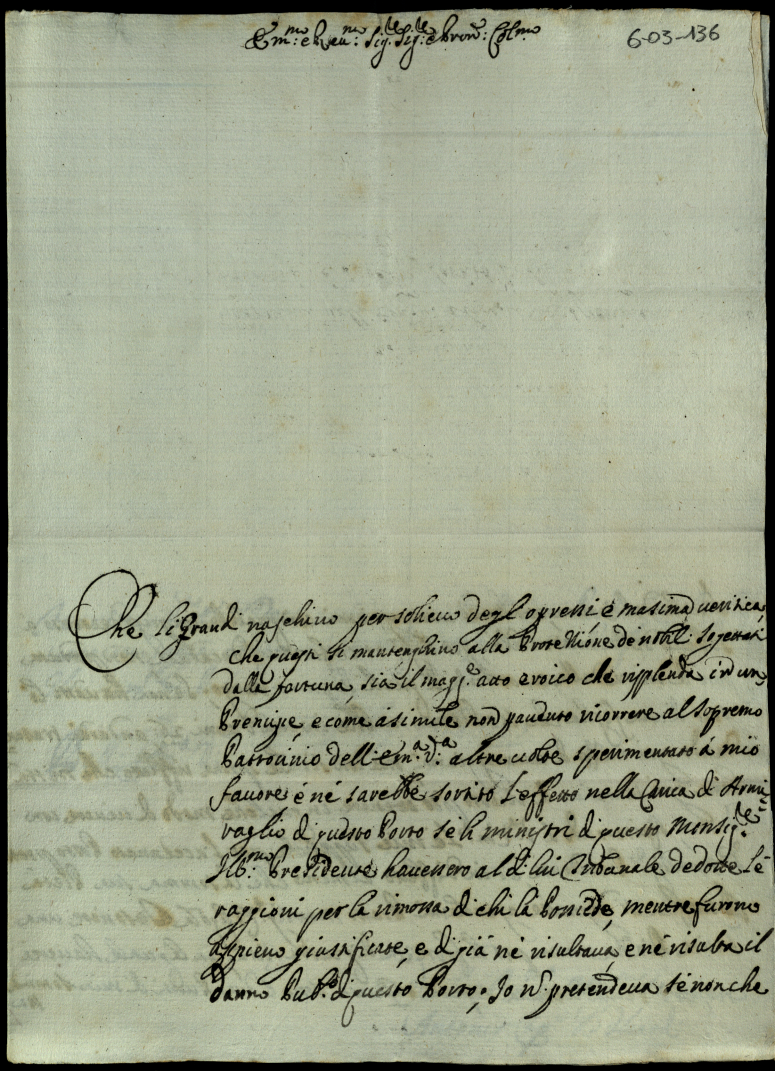 Em.mo e Reu.mo Sig. Sig.re e Pron: Col.mo
6-03-136
Che li Grandi naschino per solieuo degl'opressi, é masima ueritica,
che questi si mantenghino alla Protettione de nobili sogettati
dalla fortuna, sia il magg.e atto eroico che risplenda in un
Prencipe, e come á simile non hó dubitato ricorrere al sopremo
Patrocinio dell'Em.a V.a altre uolte sperimentato á mio
fauore é né sarebbe sortito l'effetto nella Carica di Armi
raglio di questo Porto sé li ministri di questo Monsig.re
Ill.mo Presidente hauessero al di lui Tribunale dedotte lé
raggioni per la rimossa di chi lá Possiede, mentre furono
appieno giustificate, e di giá né risultaua, e né risulta il
danno Pub.o di questo Porto; Io n. pretendeua sé non che